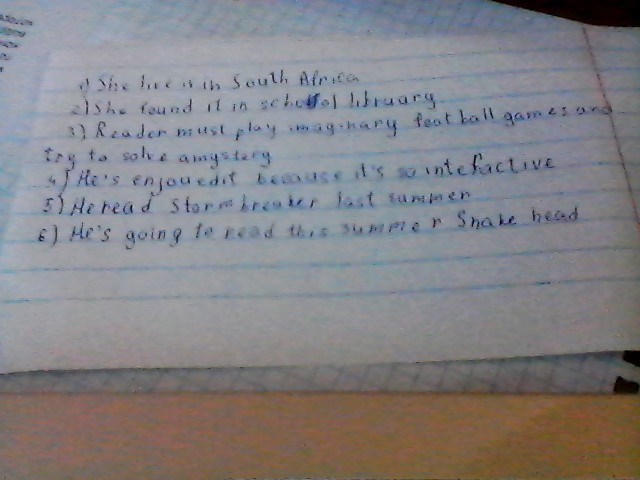 1) She live is in South Africa
2) She found it in school library
3) Reader must play imaginary football games and
try to solve a mystery
4) He's enjouedit because it's so interactive
5) He read Stormbreaker last summer
6) He's going to read this summer Snake head